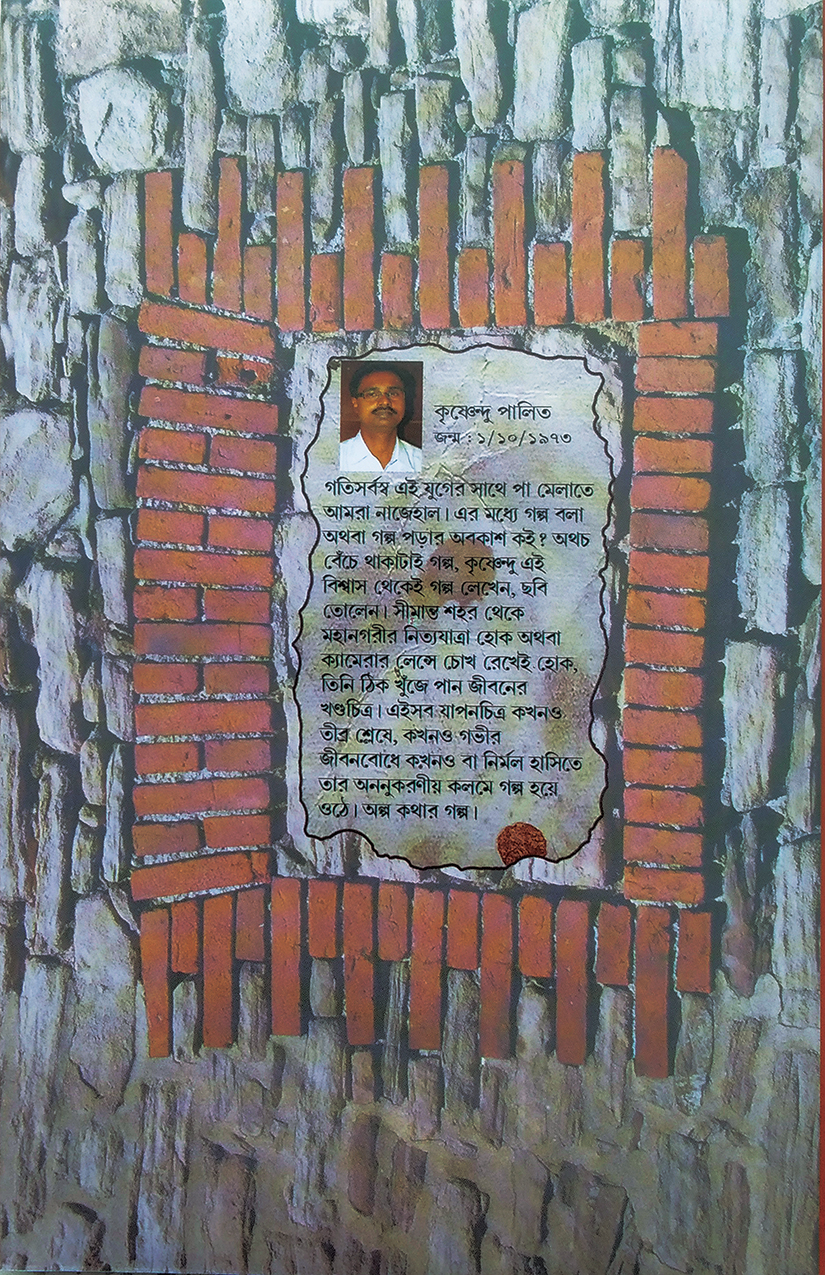 কৃষ্ণেন্দু পালিত
জন্ম : ১/১০/১৯৭৩
গতিসর্বস্ব এই যুগের সাথে পা মেলাতে
আমরা নাজেহাল। এর মধ্যে গল্প বলা
অথবা গল্প পড়ার অবকাশ কই? অথচ
বেঁচে থাকাটাই গল্প, কৃষ্ণেন্দু এই
বিশ্বাস থেকেই গল্প লেখেন, ছবি
তোলেন। সীমান্ত শহর থেকে
মহানগরীর নিত্যযাত্রা হোক অথবা
ক্যামেরার লেন্সে চোখ রেখেই হোক,
তিনি ঠিক খুঁজে পান জীবনের
খণ্ডচিত্র। এইসব যাপনচিত্র কখনও
তীব্র শ্লেষে, কখনও গভীর
জীবনবোধে কখনও বা নির্মল হাসিতে
তার অননুকরণীয় কলমে গল্প হয়ে
ওঠে। অল্প কথার গল্প।